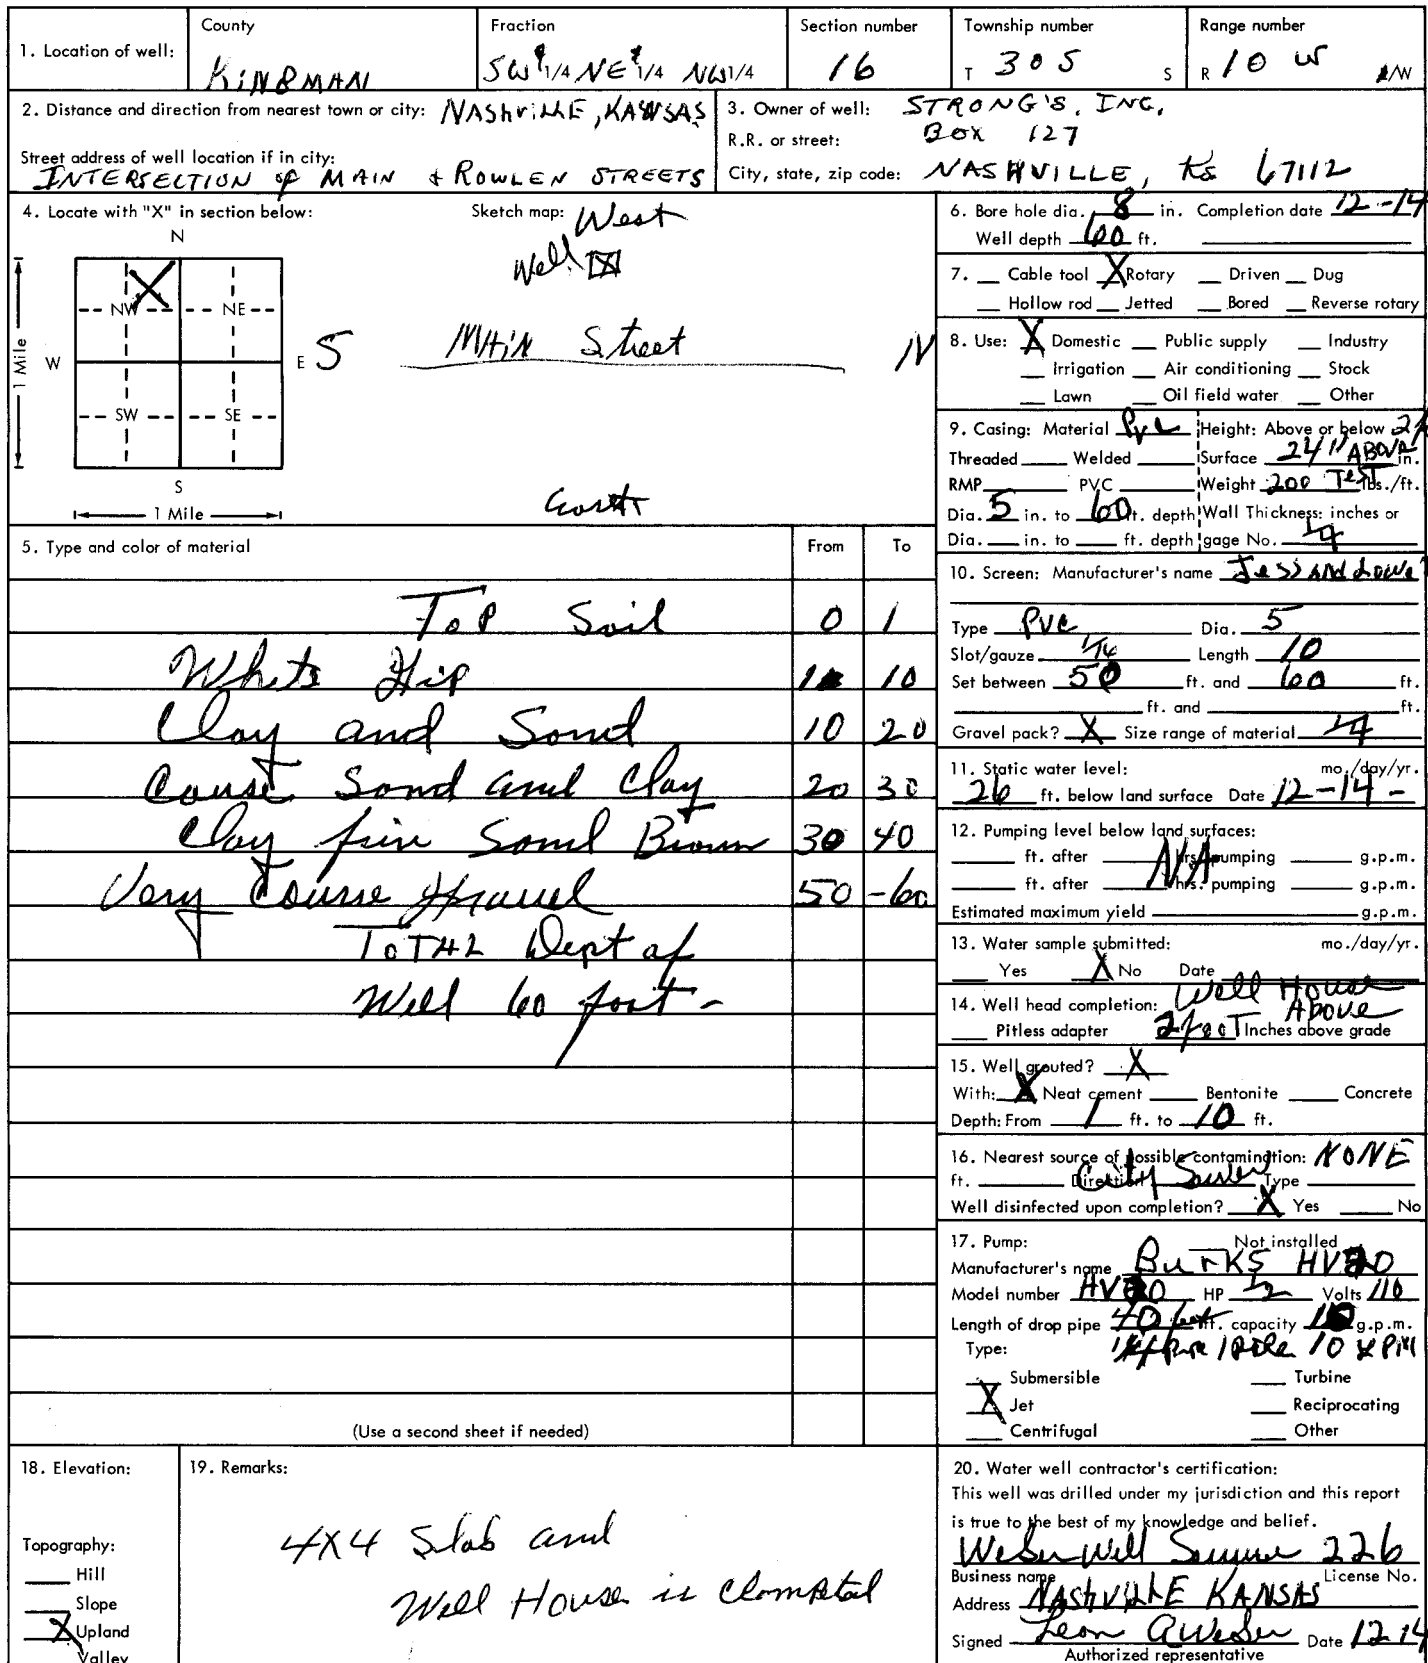 1. Location of well:
County
KINGMAN
Fraction
SW 1/4 NE 1/4 NW 1/4
Section number
16
Township number
T 30 S S
Range number
R 10 W E/W
2. Distance and direction from nearest town or city: NAShvillE, KANSAS
Street address of well location if in city:
INTERSECTION of MAIN & ROWLEN STREETS
3. Owner of well: STRONG'S, INC.
R.R. or street: BOX 127
City, state, zip code: NASHVILLE, Ks 67112
4. Locate with "X" in section below:
N
NW NE
W E
SW SE
S
1 Mile
1 Mile
Sketch map: West
Well X
S MAiN Street N
East
5. Type and color of material From To
Top Soil 0 1
White Gip 1 10
Clay and Sand 10 20
Course Sand and Clay 20 30
Clay fine Sand Brown 30 40
Very Course Gravel 50 - 60
ToTAL Dept of
Well 60 foot -
(Use a second sheet if needed)
6. Bore hole dia. 8 in. Completion date 12-14
Well depth 60 ft.
7. Cable tool X Rotary Driven Dug
Hollow rod Jetted Bored Reverse rotary
8. Use: X Domestic Public supply Industry
Irrigation Air conditioning Stock
Lawn Oil field water Other
9. Casing: Material Pvc Height: Above or below
Threaded Welded Surface 24" ABOVE in.
RMP PVC Weight 200 TesT lbs./ft.
Dia. 5 in. to 60 ft. depth Wall Thickness: inches or
Dia. in. to ft. depth gage No. 1/4
10. Screen: Manufacturer's name Jess And Lowe
Type PVC Dia. 5
Slot/gauze 1/16 Length 10
Set between 50 ft. and 60 ft.
ft. and ft.
Gravel pack? X Size range of material 1/4
11. Static water level: mo./day/yr.
26 ft. below land surface Date 12-14-
12. Pumping level below land surfaces:
N/A
ft. after hrs. pumping g.p.m.
ft. after hrs. pumping g.p.m.
Estimated maximum yield g.p.m.
13. Water sample submitted: mo./day/yr.
Yes X No Date
14. Well head completion: Well House
Above
Pitless adapter 2 fooT Inches above grade
15. Well grouted? X
With: X Neat cement Bentonite Concrete
Depth: From 1 ft. to 10 ft.
16. Nearest source of possible contamination: NONE
ft. Direction City Sewer Type
Well disinfected upon completion? X Yes No
17. Pump: Not installed
Manufacturer's name BurKS
Model number HP 1/2 Volts 110
Length of drop pipe 40 feet ft. capacity 10 g.p.m.
Type:
Submersible Turbine
X Jet Reciprocating
Centrifugal Other
18. Elevation:
Topography:
Hill
Slope
X Upland
Valley
19. Remarks:
4X4 Slab and
Well House is Completed
20. Water well contractor's certification:
This well was drilled under my jurisdiction and this report
is true to the best of my knowledge and belief.
Weber Well Service 226
Business name License No.
Address NASHVILLE KANSAS
Signed Leon A Weber Date 12-14
Authorized representative